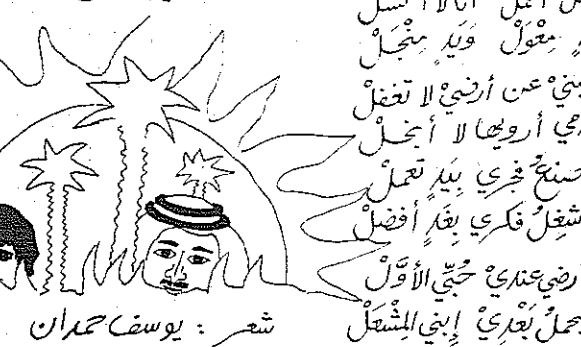 أعمل أنا لا أكسل
مِعْوَلْ وَيَدٍ مِنْجَلْ
عن أرضيْ لا تغفلْ
أرويها لا أبخلْ
فجري بِيَدٍ تعملْ
فكري بِغَدٍ أفضلْ
عنديْ حُبّي الأوَّلْ
بَعْدِيْ إبني المِشْعَلْ
شعر : يوسف حمدان